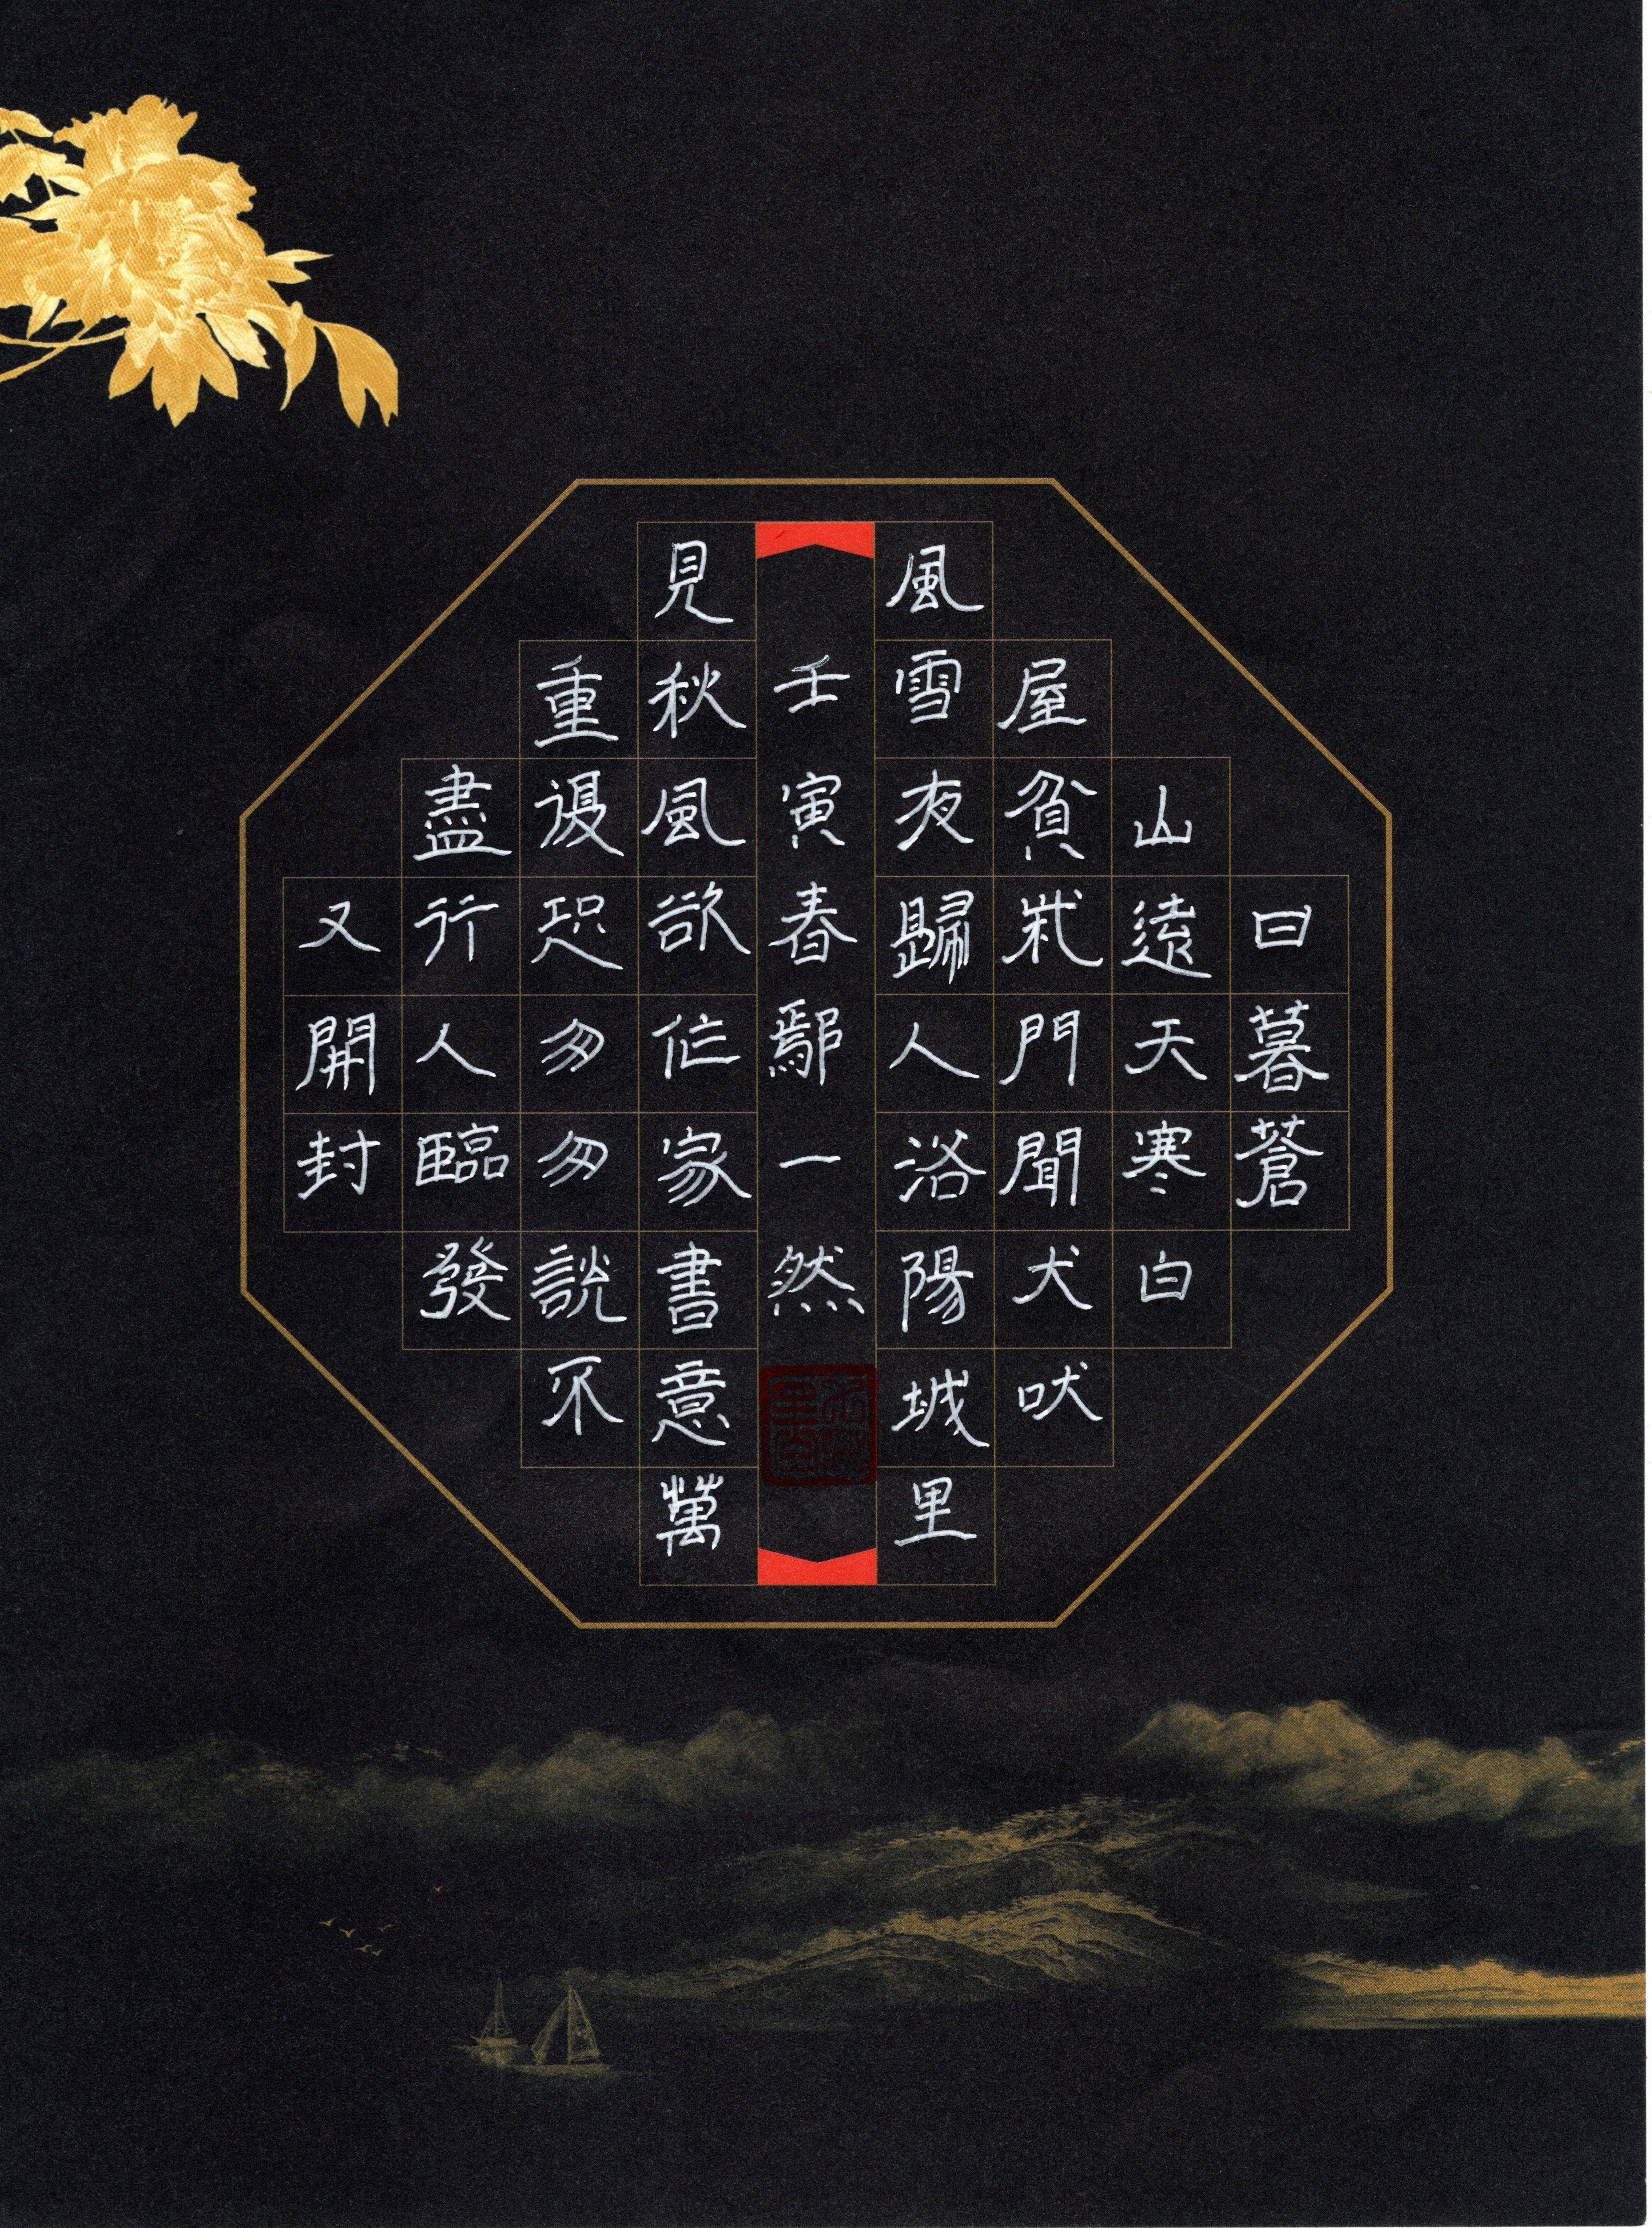 日暮蒼
山遠天寒白
屋貧柴門聞犬吠
風雪夜歸人洛陽城里
壬寅春鄢一然
見秋風欲作家書意萬
重復恐匆匆説不
盡行人臨發
又開封